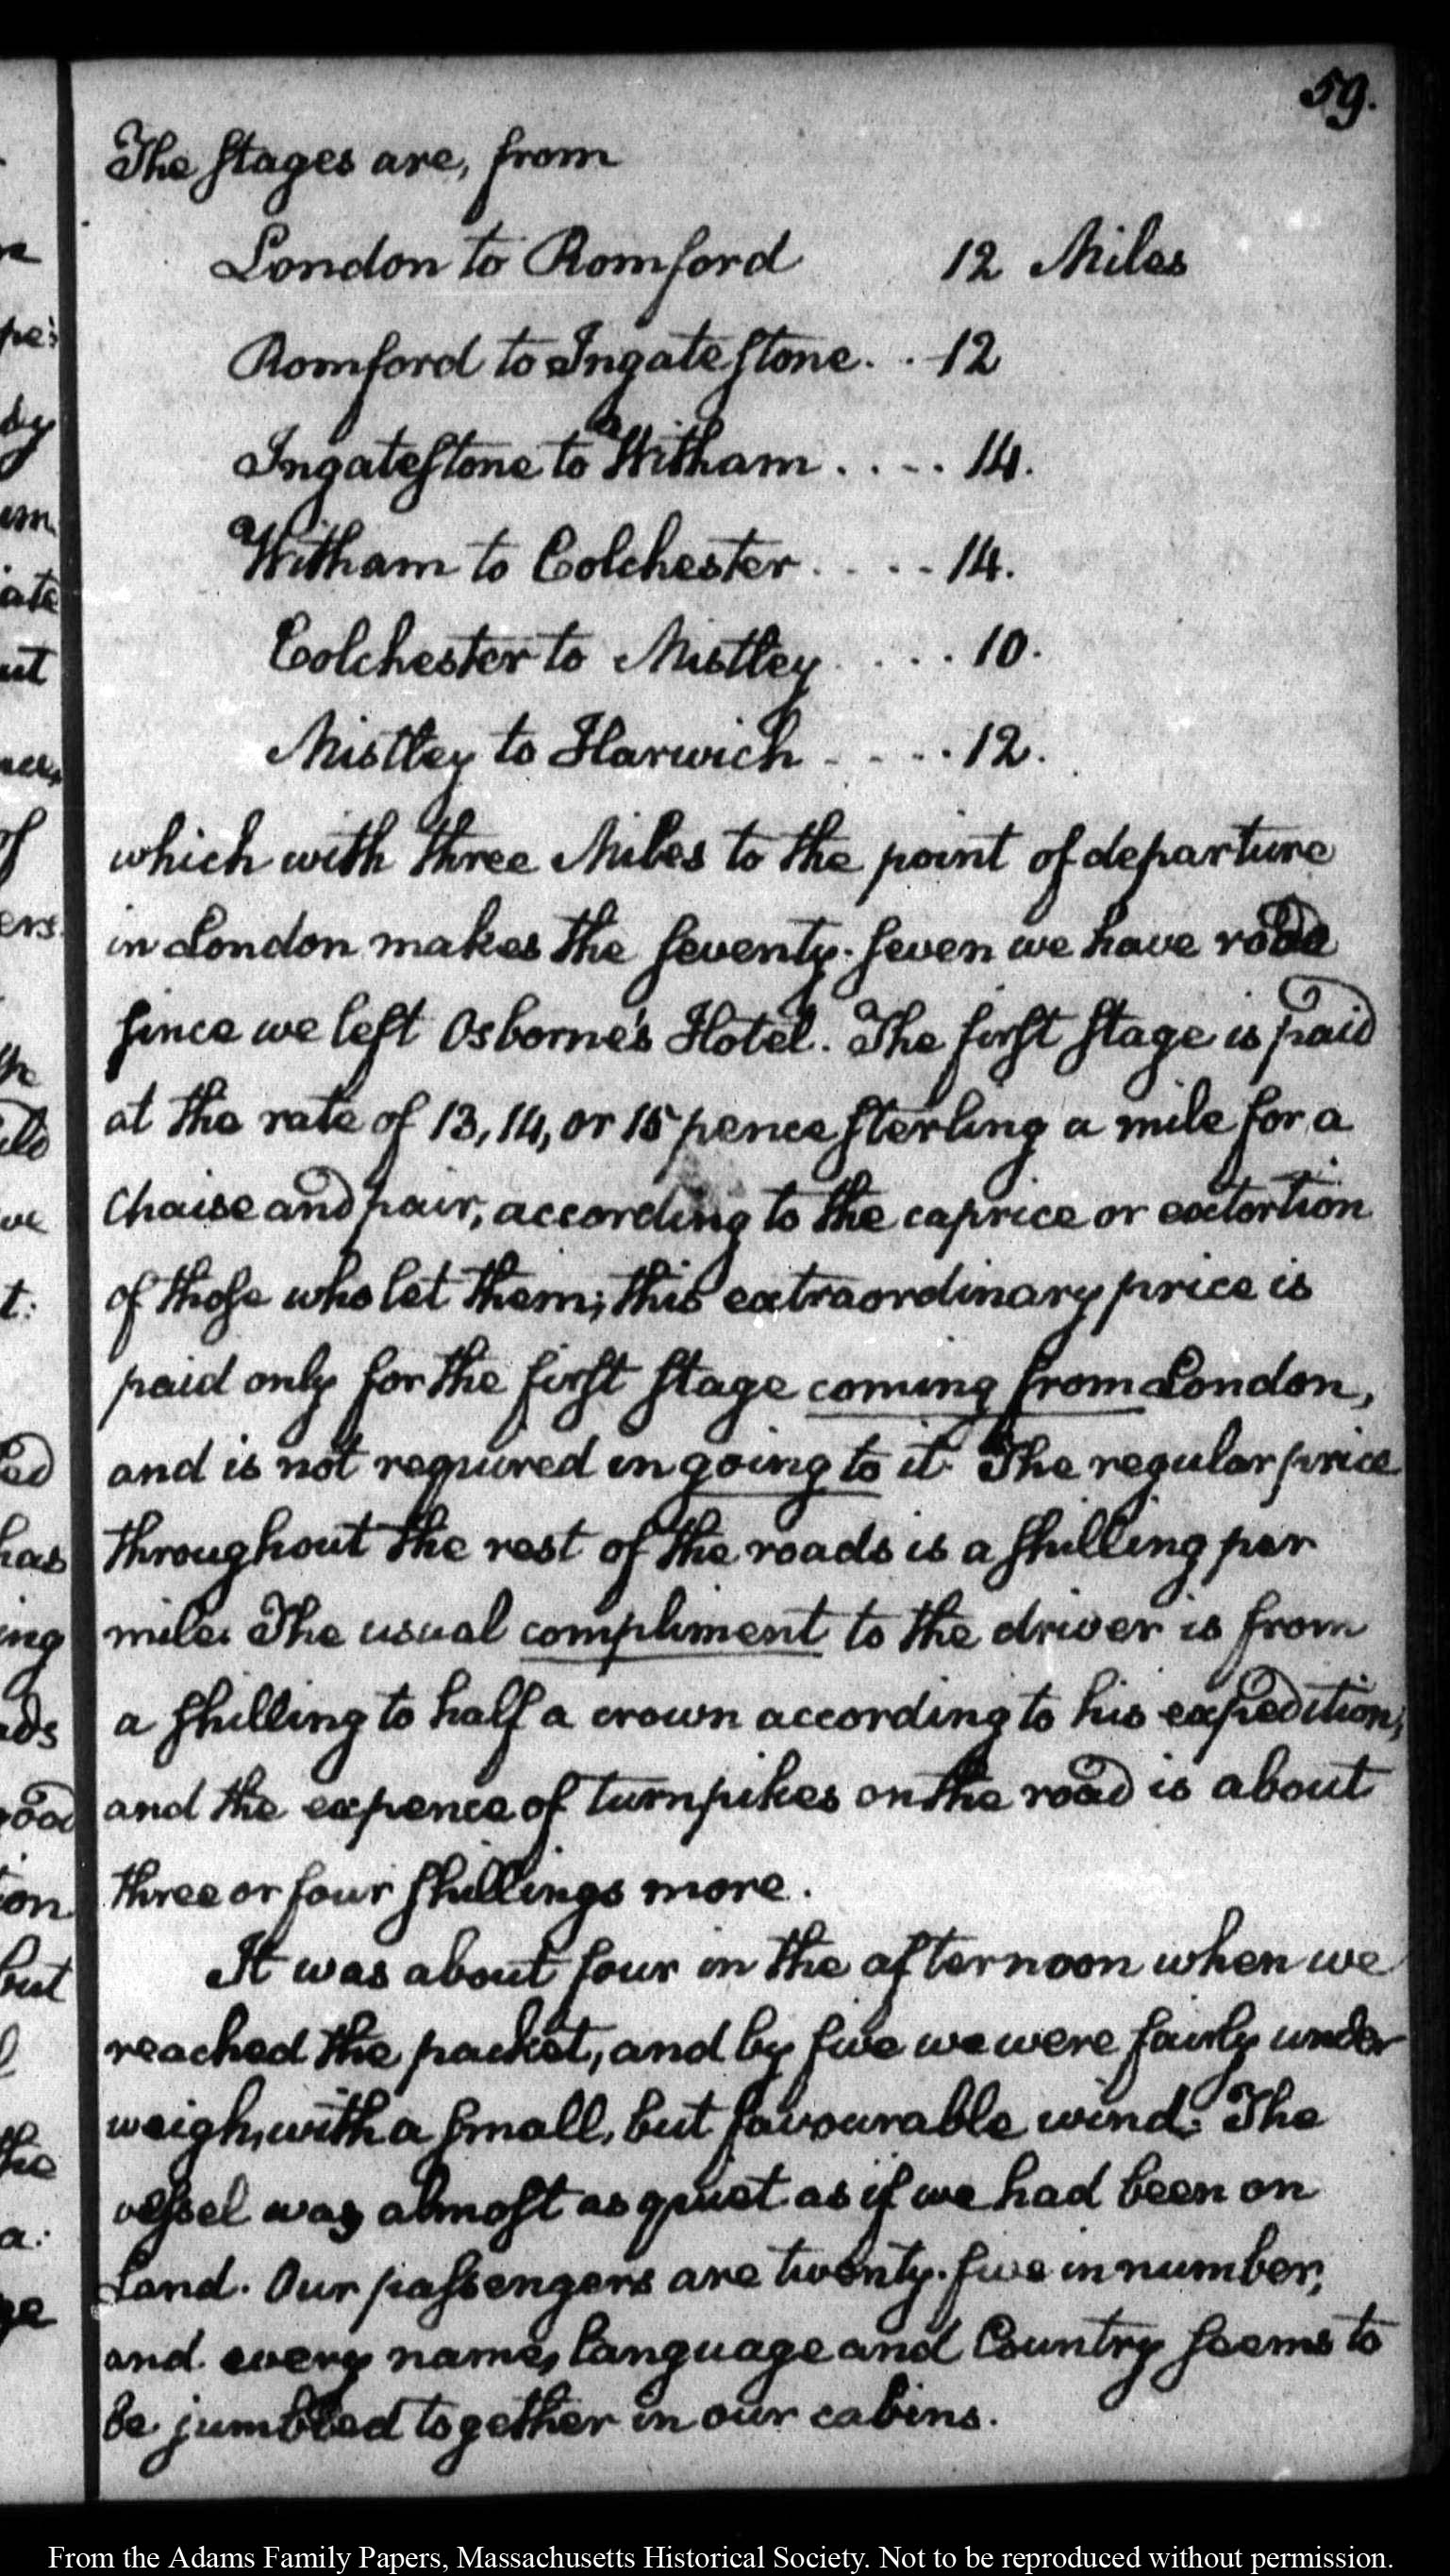 59.
The stages are, from
London to Romford 12 Miles
Romford to Ingatestone. . 12
Ingatestone to Witham . . . . 14.
Witham to Colchester . . . . 14.
Colchester to Mistley . . . . 10.
Mistley to Harwich . . . . 12.
which with three Miles to the point of departure
in London makes the seventy-seven we have rode
since we left Osborne's Hotel. The first stage is paid
at the rate of 13, 14, or 15 pence sterling a mile for a
chaise and pair, according to the caprice or extortion
of those who let them; this extraordinary price is
paid only for the first stage coming from London,
and is not required in going to it. The regular price
throughout the rest of the roads is a shilling per
mile. The usual compliment to the driver is from
a shilling to half a crown according to his expedition,
and the expence of turnpikes on the road is about
three or four shillings more.
It was about four in the afternoon when we
reached the packet, and by five we were fairly under
weigh, with a small, but favourable wind. The
vessel was almost as quiet as if we had been on
land. Our passengers are twenty-five in number,
and every name, language and Country seems to
be jumbled together in our cabins.
From the Adams Family Papers, Massachusetts Historical Society. Not to be reproduced without permission.